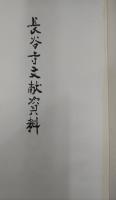 長谷寺文献資料